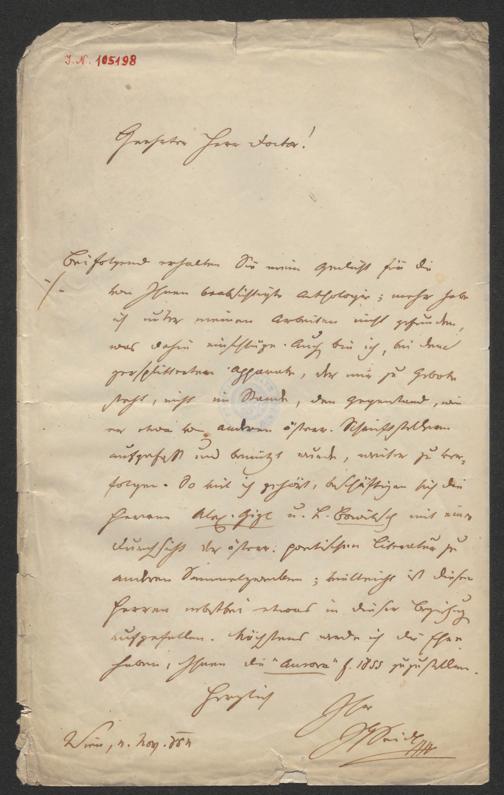 I. N. 105198
Geehrter Herr Doctor!
Beifolgend erhalten Sie mein Gedicht für die
-/- von Ihnen beabsichtigte Anthologie; mehr habe
ich unter meinen Arbeiten nicht gefunden,
was dahin einschlüge. Auch bin ich, bei dem
zersplitterten Apparate, der mir zu Gebote
steht, nicht im Stande, den Gegenstand, wie
er etwa von andren österr. Schriftstellern
aufgefaßt und benützt wurde, weiter zu ver-
folgen. So viel ich gehört, beschäftigen sich die
Herren Alex. Gigl u. L. Bowitsch mit einer
Durchsicht der österr. poetischen Literatur zu
andren Sammelzwecken; vielleicht ist diesen
Herren nebstbei etwas in dieser Beziehung
aufgefallen. Nächstens werde ich die Ehre
haben, Ihnen die "Aurora" f. 1855 zuzustellen.
Herzlich
Ihr
Wien, 4. Nov. 854
JGSeidl